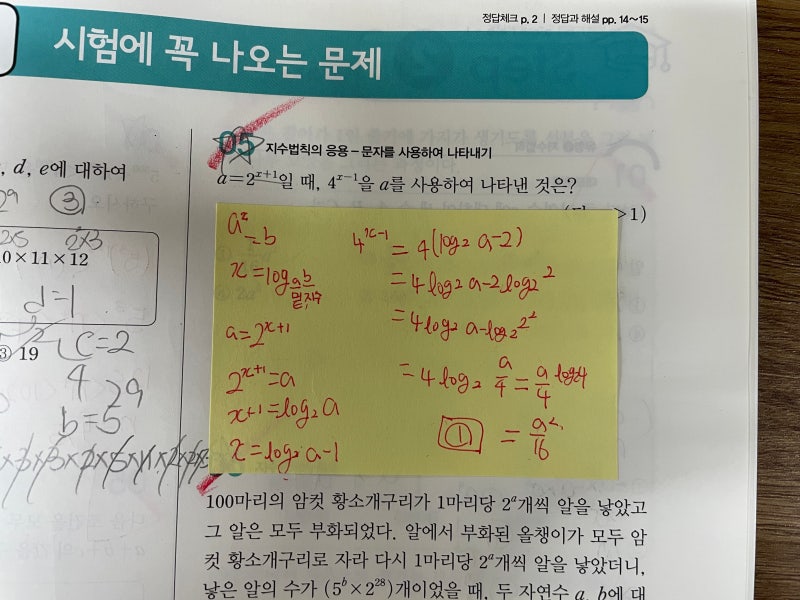 정답체크 p. 2 | 정답과 해설 pp. 14~15
시험에 꼭 나오는 문제
, d, e에 대하여
29 ③
2×5 2×3
0×11×12
d=1
③ 19
C=2
4 29
b=5
05 지수법칙의 응용 – 문자를 사용하여 나타내기
a=2^{x+1}일 때, 4^{x-1}을 a를 사용하여 나타낸 것은?
>1)
a^x=b
x=log_a b
밑 지수
a=2^{x+1}
2^{x+1}=a
x+1=log_2 a
x=log_2 a-1
4^{x-1}=4(log_2 a-2)
=4log_2 a-2log_2 2
=4log_2 a-log_2 2^2
=4log_2 a/4=a/4 log4
① =a^2/16
100마리의 암컷 황소개구리가 1마리당 2^a개씩 알을 낳았고
그 알은 모두 부화되었다. 알에서 부화된 올챙이가 모두 암
컷 황소개구리로 자라 다시 1마리당 2^a개씩 알을 낳았더니,
낳은 알의 수가 (5^b×2^{28})개이었을 때, 두 자연수 a, b에 대